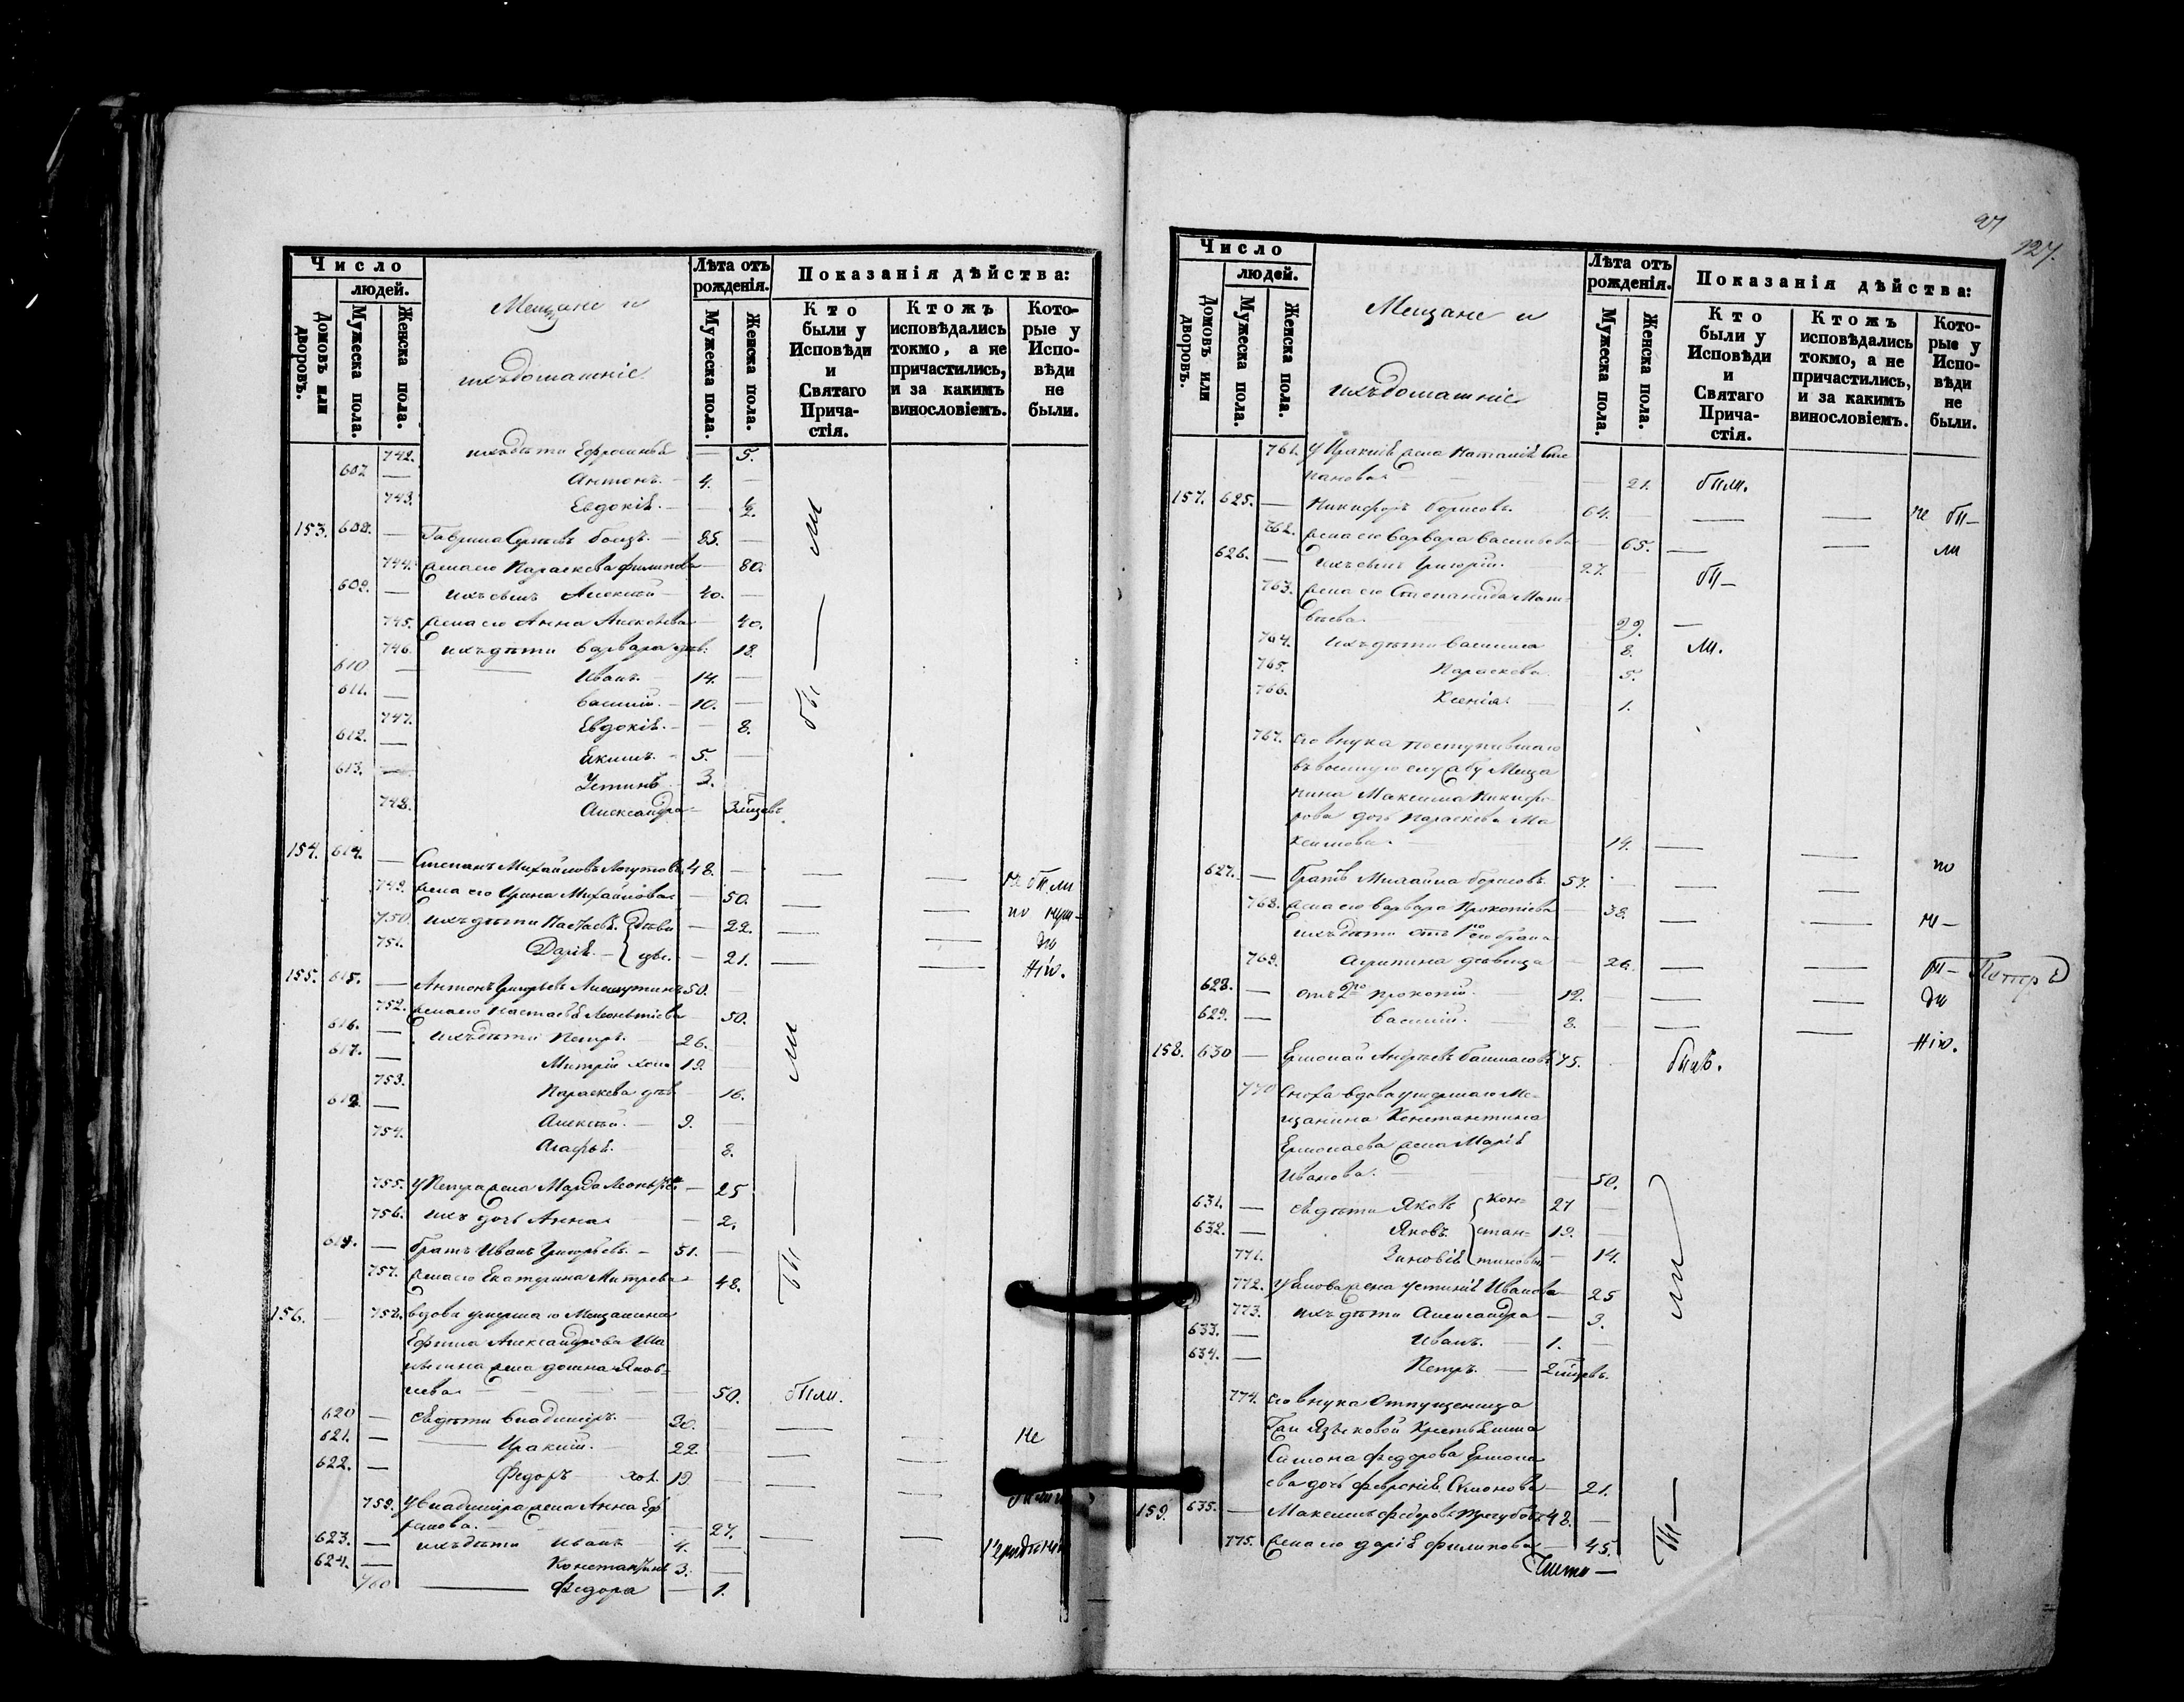 Число
людей.
Домовъ или дворовъ.
Мужеска пола.
Женска пола.
Мещане и
ихъ домашніе
Лѣта отъ рожденія.
Мужеска пола.
Женска пола.
Показанія дѣйства:
Кто были у Исповѣди и Святаго Причастія.
Ктожъ исповѣдались токмо, а не причастились, и за какимъ винословіемъ.
Которые у Исповѣди не были.
742. ихъ дѣти Ефросинья — 5.
607 — Антонъ. — 4. —
743. Евдокія. — ½.
153. 608. — Гаврила Сергѣевъ — 85. —
744. жена его Параскева Филипова — 80.
609. — ихъ сынъ Алексѣй — 40. —
745. жена его Анна Алексѣева — 40.
746. ихъ дѣти Варвара дѣв: 18.
610 — Иванъ. — 14. —
611. — Василій. — 10. —
747. Евдокія. — 8.
612. — Екимъ. — 5. —
613. — Устинъ — 3.
748. Александра — 3 мѣсцевъ
бы — ли
154. 614. — Степанъ Михайловъ 48. — — — не были
749. жена его Ирина Михайлова — 50. — — по нуж-
750. ихъ дѣти Настасья. дѣви 22. — — дѣ
751. Дарія. — цы. — 21. — — нію.
155. 615. — Антонъ Григорьевъ 50. —
752. жена его Настасья Леонтіева 50.
616. — ихъ дѣти Петръ. 26. —
617. — Митрій хол. 19. —
753. Параскева дѣв. 16.
618. — Алексѣй. — 9. —
754. Агафья. — 8.
755. у Петра жена Марфа — 25
756. ихъ дочь Анна — 2.
619. — братъ Иванъ Григорьевъ. — 51. —
757. жена его Екатерина Митрева 48.
бы — ли
156. — 758. вдова умершаго Мещанина
Ефима Александрова
жена Яков-
лева — 50. были.
620 — ея дѣти Владимиръ. — 30. — —
621. — Ираклій. — 22. — — Не
622. — Федоръ хол. 19. — —
759. у Владимира жена Анна
27. — —
623. — ихъ дѣти Иванъ — 4. —
624. — Константинъ 3. —
760 — Федора — 1.
97
127.
Число
людей.
Домовъ или дворовъ.
Мужеска пола.
Женска пола.
Мещане и
ихъ домашніе
Лѣта отъ рожденія.
Мужеска пола.
Женска пола.
Показанія дѣйства:
Кто были у Исповѣди и Святаго Причастія.
Ктожъ исповѣдались токмо, а не причастились, и за какимъ винословіемъ.
Которые у Исповѣди не были.
761. у Ираклія жена Наталія Сте
панова — 21. были.
157. 625. — Никифоръ Борисовъ. 64. — — — не бы-
762. жена его Варвара Васильева 65. — — ли
626. — ихъ сынъ Григорій. 27. — бы-
763. жена его Степанида Мат-
вѣева. 29. —
764. ихъ дѣти Василиса 8. ли.
765. Параскева 5.
766. Ксенія 1.
767. его внука поступившаго
въ военную службу Меща
нина Максима Никифо
рова дочь Параскева Ма
ксимова. 14. — — по
627. — братъ Михаила Борисовъ. 57. — — —
768. жена его Варвара Прокопіева 38. — — ну-
ихъ дѣти отъ 1го его брака
769. Агрипина дѣвица 26. — —
628. — отъ 2го Прокопій. 12. — — — дѣ
629. — Василій. 8. — — —
нію.
158. 630 — Ермолай Андреевъ 75. былъ.
770 сноха вдова умершаго Ме-
щанина Константина
Ермолаева жена Марія
Иванова. — 50.
631. — ея дѣти Яковъ Кон- 27 —
632. — Яковъ. стан- 19. —
771. Зиновія тиновы — 14.
772. у Якова жена Устинія Иванова 25
773. ихъ дѣти Александра — 3.
633. — Иванъ. — 1. —
634. — Петръ. — 2 мѣсцевъ.
774. его внука Отпущеница
Г-жи Языковой Крестьянина
Симона Федорова Ермола
ева дочь Февронія Симонова — 21.
159. 635. — Максимъ Федоровъ 48. —
775. жена его Дарія Филипова — 45.
бы — ли